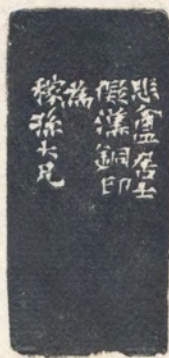 悲盦居士
儗漢銅印
為
稼孫大兄